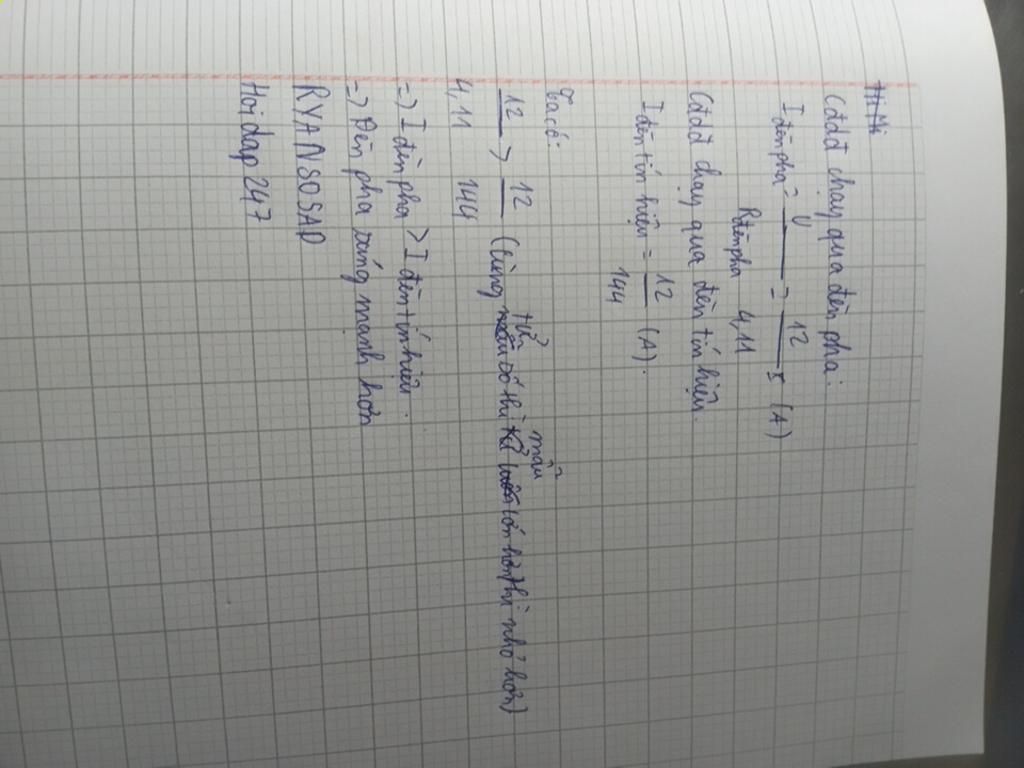 Cđdđ chạy qua đèn pha:
I đèn pha = U/R đèn pha = 12/4,11 (A)
Cđdđ chạy qua đèn tín hiệu.
I đèn tín hiệu = 12/144 (A).
Ta có:
12/4,11 > 12/144 (Cùng tử số thì mẫu lớn hơn thì nhỏ hơn)
=> I đèn pha > I đèn tín hiệu.
=> Đèn pha sáng mạnh hơn
RYANSOSAD
Hoidap247